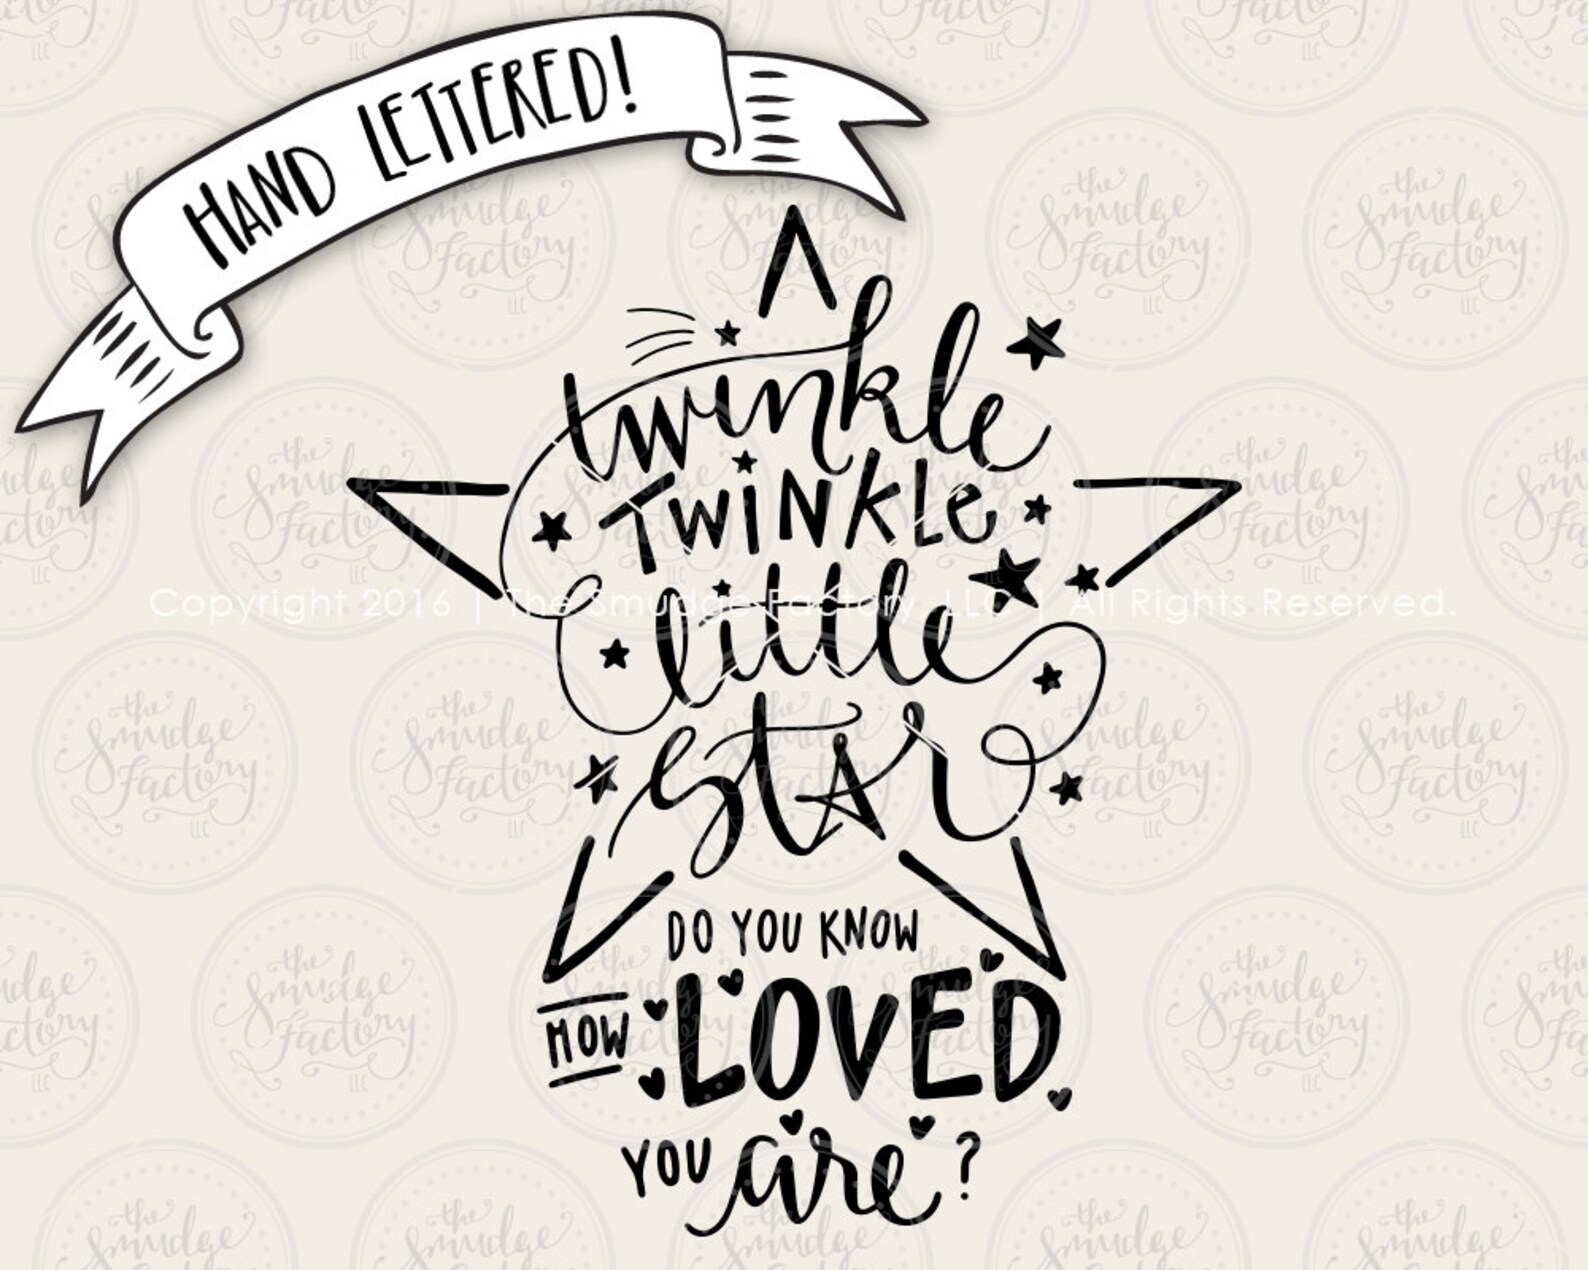 HAND LETTERED!
twinkle
TWINKLe
little
star
Copyright 2016 | The Smudge Factory, LLC | All Rights Reserved.
DO YOU KNOW
HOW LOVED
YOU are?
the
Smudge
Factory
LLC